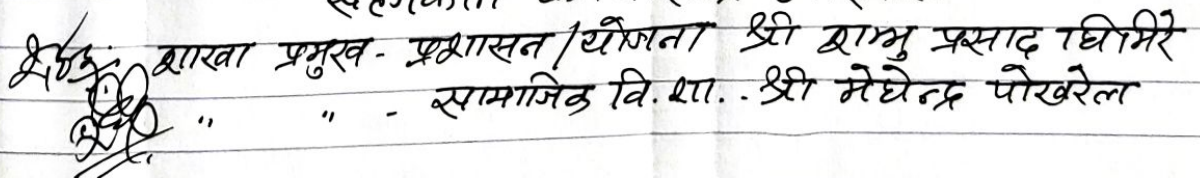 शाखा प्रमुख - प्रशासन / योजना श्री शम्भु प्रसाद घिमिरे
" " - सामाजिक वि. शा. . श्री मेघेन्द्र पोखरेल